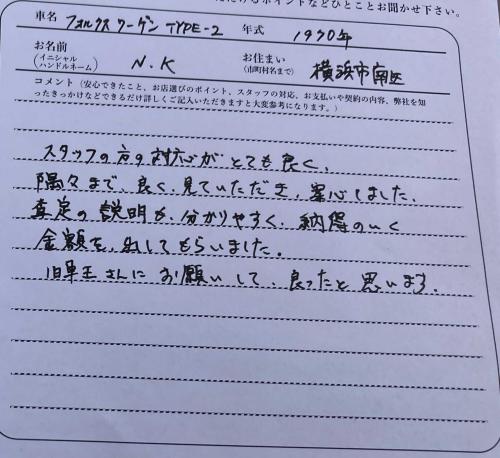 けるポイントなどひとことお聞かせ下さい。
車名 フォルクスワーゲン TYPE-2 年式 1970年
お名前 (イニシャル ハンドルネーム) N.K お住まい (市町村名まで) 横浜市南区
コメント (安心できたこと、お店選びのポイント、スタッフの対応、お支払いや契約の内容、弊社を知
ったきっかけなどできるだけ詳しくご記入いただきますと大変参考になります。)
スタッフの方の対応がとても良く、
隅々まで、良く、見ていただき、安心しました。
査定の説明が、分かりやすく、納得のいく
金額を、出してもらいました。
旧車王さんにお願いして、良ったと思います。